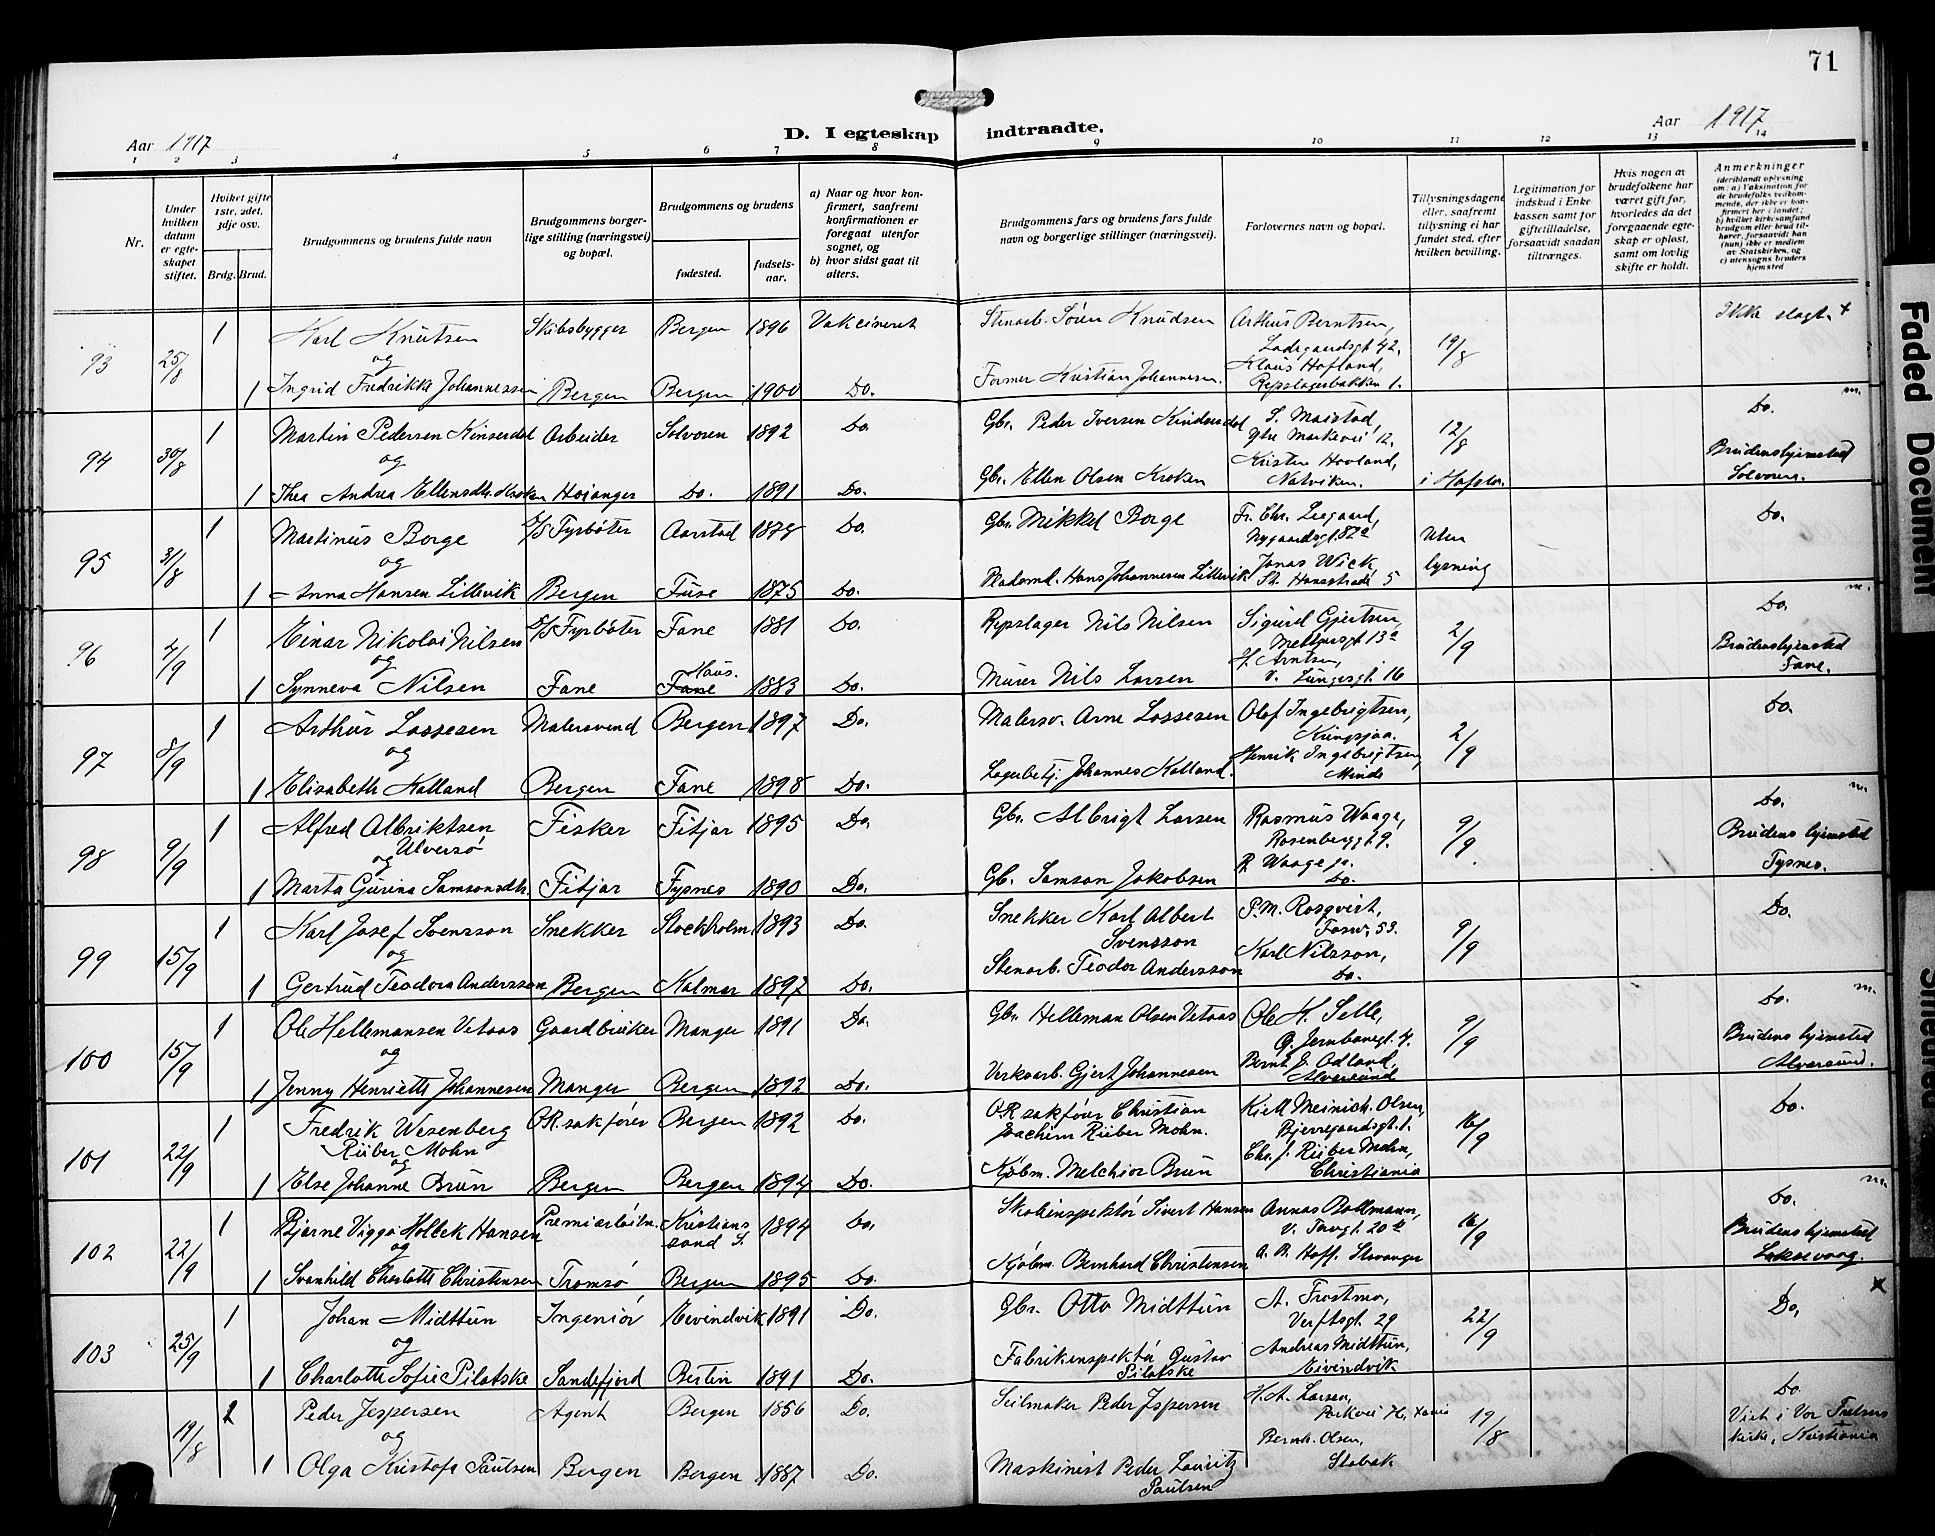 71
Aar 1917
D. I egteskap indtraadte.
Aar 1917
1 2 3 4 5 6 7 8 9 10 11 12 13 14
Nr.
Under hvilken datum er egteskapet stiftet.
Hvilket gifte 1ste, 2det, 3dje osv.
Brdg. Brud.
Brudgommens og brudens fulde navn
Brudgommens borgerlige stilling (næringsvei) og bopæl.
Brudgommens og brudens
fødested. fødselsaar.
a) Naar og hvor konfirmert, saafremt konfirmationen er foregaat utenfor sognet, og
b) hvor sidst gaat til alters.
Brudgommens fars og brudens fars fulde navn og borgerlige stillinger (næringsvei).
Forlovernes navn og bopæl.
Tillysningsdagene eller, saafremt tillysning ei har fundet sted, efter hvilken bevilling.
Legitimation for indskud i Enkekassen samt for giftetilladelse, forsaavidt saadan tiltrænges.
Hvis nogen av brudefolkene har været gift før, hvorledes da det foregaaende egteskap er opløst, samt om lovlig skifte er holdt.
Anmerkninger
(deriblandt oplysning om: a) Vaksination for de brudefolks vedkommende, der ikke er konfirmert her i landet; b) hvilket kirkesamfund brudgom eller brud tilhører, forsaavidt han (hun) ikke er medlem av Statskirken, og c) utensogns bruders hjemsted
93 25/8 1 Karl Knutsen Skibsbygger Bergen 1896 Vakcineret Stenarb. Søren Knudsen Arthur Berntsen, Ladegaardsgt. 42. 19/8 Ikke slagt. +
og
1 Ingrid Fredrikke Johannessen Bergen Bergen 1900 Do. Former Kristian Johannesen. Klaus Hofland, Repslagerbakken 1.
94 30/8 1 Martin Pedersen Kinserdal Arbeider Solvoren 1892 Do. Gbr. Peder Iversen Kindserdal S. Maistad, Ytre Markevei 12. 12/8 Do. m.
og
1 Thea Andrea Ellensdtr. Kroken Høianger Do. 1891 Do. Gbr. Ellen Olsen Kroken Kristen Hovland, Natviken. i Hafslo. Brudens hjemsted Solvoren.
95 31/8 1 Martinus Borge D/S Fyrbøter Aarstad 1878 Do. Gbr. Mikkel Borge Fr. Chr. Leegaard, Nygaardsgt. 82a Uten lysning Do.
og
1 Anna Hansen Lillevik Bergen Fuse 1875 Do. Hans Johannesen Lillevik Jonas Wick, St. Hansstræde 5
96 4/9 1 Einar Nikolai Nilsen D/S Fyrbøter Fane 1881 Do. Repslager Nils Nilsen Sigurd Gjertsen, Meltzersgt. 13a 2/9 Do. m.
og
1 Synneva Nilsen Fane Haus. Fane 1883 Do. Murer Nils Larsen H. Arntsen, V. Lungegt. 16 Brudens hjemsted Fane.
97 8/9 1 Arthur Lassesen Malersvend Bergen 1897 Do. Malersv. Arne Lassesen Olef Ingebrigtsen, Kringsjaa. 2/9 Do.
og
1 Elisabeth Kalland Bergen Fane 1898 Do. Lagerbetj. Johannes Kalland. Henrik Ingebrigtsen, Minde
98 9/9 1 Alfred Albriktsen Ulversø Fisker Fitjar 1895 Do. Gbr. Albrigt Larsen Rasmus Waage, Rosenberggt. 9. 9/9 Do. m.
og
1 Marta Gurina Samsonsdtr. Fitjar Tysnes 1890 Do. Gb. Samson Jakobsen R. Waage jr. Do. Brudens hjemsted Tysnes.
99 15/9 1 Karl Josef Svensson Snekker Stockholm 1893 Do. Snekker Karl Albert Svensson P. M. Rosqvist, Fosw. 53. 9/9 Do.
og
1 Gertrud Teodora Andersson Bergen Kalmar 1897 Do. Stenarb. Teodor Andersson Karl Nilsson, Do.
100 15/9 1 Ole Hellemansen Vetaas Gaardbruker Manger 1891 Do. Gbr. Helleman Olsen Vetaas Ole H. Selle, Q. Jernbanegt. 4. 9/9 Do. m.
og
1 Jenny Henriette Johannesen Manger Bergen 1892 Do. Verksarb. Gjert Johannesen Bernt J. Odland, Alversund Brudens hjemsted Alversund.
101 22/9 1 Fredrik Wesenberg Rieber Mohn O.R. sakfører Bergen 1892 Do. O.R. sakfører Christian Joachim Rieber Mohn. Kiell Meinich. Olsen, Bjerregaardsgt. 1. 16/9 Do.
og
1 Else Johanne Brun Bergen Bergen 1894 Do. Kjøbm. Melchior Brun Chr. J. Rieber Mohn, Christiania
102 22/9 1 Bjarne Viggo Holbek Hansen Premierløitn. Kristianssand S. 1894 Do. Skoleinspektør Sivert Hansen Annas Bollmann, V. Torvgt. 20b 16/9 Do. m.
og
1 Svanhild Charlotte Christensen Tromsø Bergen 1895 Do. Kjøbm. Bernhard Christensen A. B. Hoff. Stavanger Brudens hjemsted Laksevaag.
103 25/9 1 Johan Midttun Ingeniør Eivindvik 1891 Do. Gbr. Otto Midttun A. Frostmo, Verftsgt. 29 22/9 Do, x
og
1 Charlotte Sofie Pilatske Sandefjord Berlin 1891 Do. Fabrikinspektør Gustav Pilatske Andreas Midttun, Eivindvik
19/8 2 Peder Jespersen Agent Bergen 1856 Do. Seilmaker Peder Jespersen H. A. Larsen, Parkvei 19/8 Do.
og
1 Olga Kristofa Paulsen Bergen Bergen 1887 Do. Maskinist Peder Lauritz Paulsen Bernh. Olsen, Stabæk Viet i Vor Frelsers kirke, Kristiania
Faded Document
Smeared